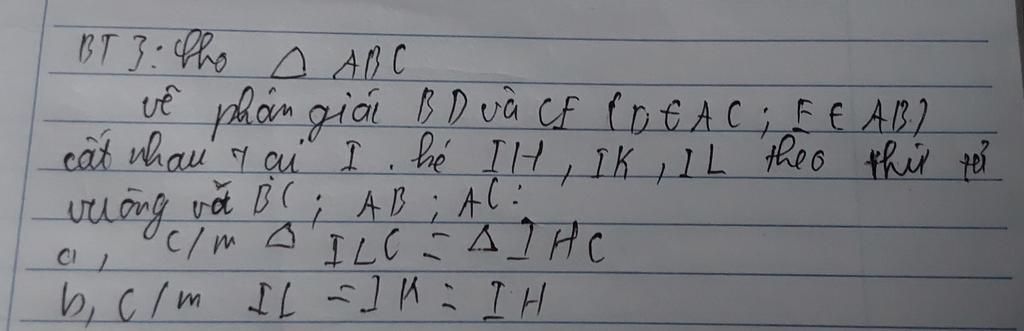 BT 3: Cho △ ABC
vẽ phân giái BD và CE (D ∈ AC ; E ∈ AB)
cắt nhau tại I . kẻ IH , IK , IL theo thứ tự
vuông với BC ; AB ; AC :
a, c/m △ ILC = △ IHC
b, c/m IL = IK = IH